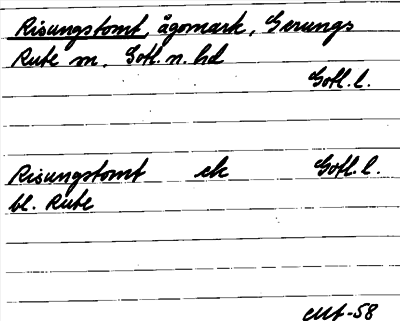 Risungstomt, ågomark, Gerungs
Rute sn, Gotl. n. hd
Gotl. l.
Risungstomt ek Gotl. l.
bl. Rute